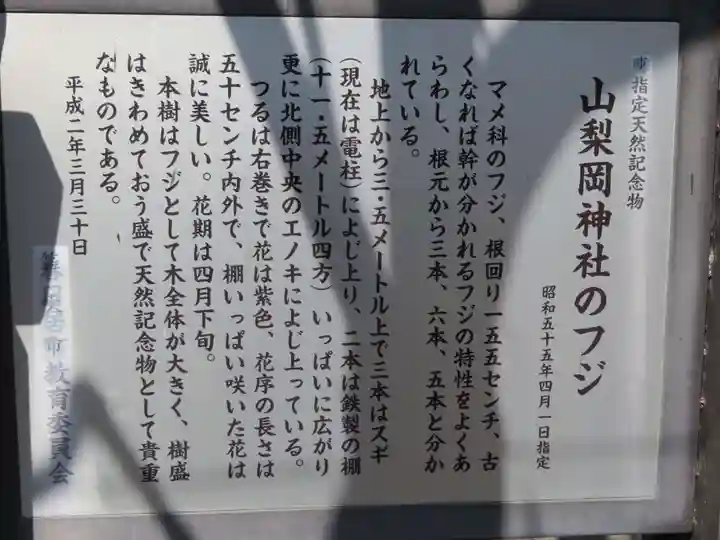 市指定天然記念物
山梨岡神社のフジ
昭和五十五年四月一日指定
マメ科のフジ、根回り一五五センチ、古
くなれば幹が分かれるフジの特性をよくあ
らわし、根元から三本、六本、五本と分か
れている。
地上から三・五メートル上で三本はスギ
(現在は電柱)によじ上り、二本は鉄製の棚
(十一・五メートル四方)いっぱいに広がり
更に北側中央のエノキによじ上っている。
つるは右巻きで花は紫色、花序の長さは
五十センチ内外で、棚いっぱい咲いた花は
誠に美しい。花期は四月下旬。
本樹はフジとして木全体が大きく、樹盛
はきわめておう盛で天然記念物として貴重
なものである。
平成二年三月三十日
市教育委員会